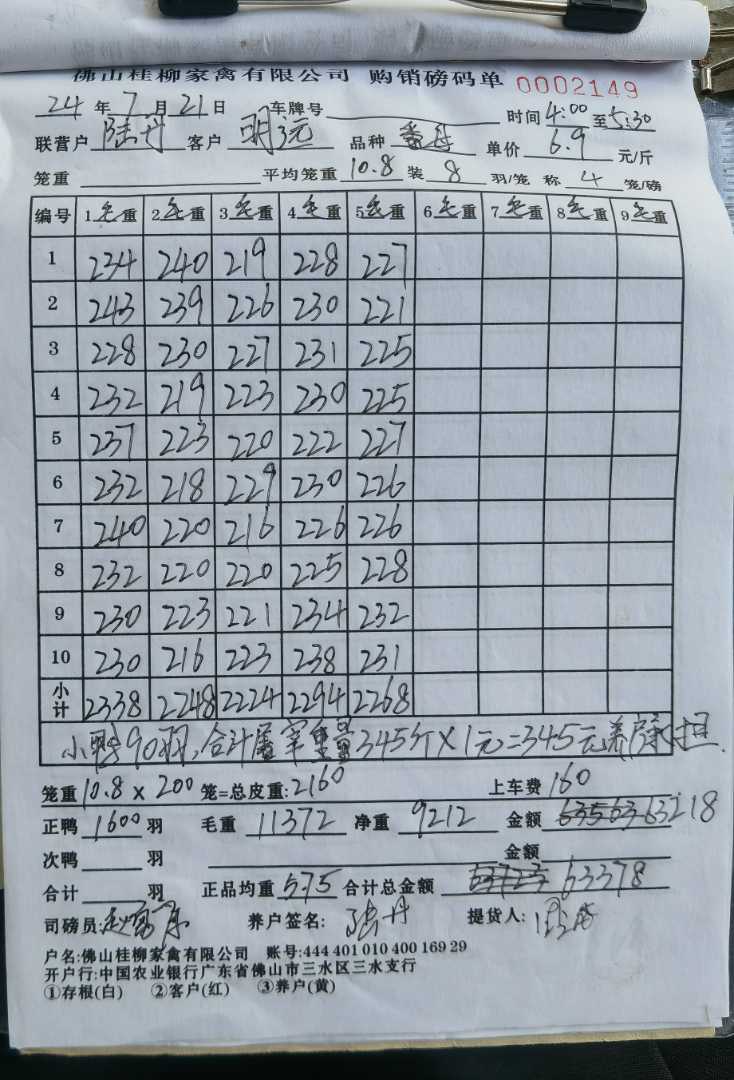 佛山桂柳家禽有限公司 购销磅码单 0002149
24年7月21日 车牌号 时间4:00至5:30
联营户 陆丹 客户 明远 品种 番鸭 单价 6.9 元/斤
笼重 平均笼重 10.8 装 8 羽/笼 称 4 笼/磅
编号 1毛重 2毛重 3毛重 4毛重 5毛重 6毛重 7毛重 8毛重 9毛重
1 234 240 219 228 227
2 243 239 226 230 221
3 228 230 227 231 225
4 232 219 223 230 225
5 237 223 220 222 227
6 232 218 229 230 226
7 240 220 216 226 226
8 232 220 220 225 228
9 230 223 221 234 232
10 230 216 223 238 231
小计 2338 2248 2224 2294 2268
小鸭90羽,合计屠宰重量345斤×1元=345元养户承担.
笼重10.8×200笼=总皮重:2160 上车费160
正鸭 1600 羽 毛重 11372 净重 9212 金额 63563 63218
次鸭 羽 金额
合计 羽 正品均重 5.75 合计总金额 63723 63378
司磅员: 养户签名: 陆丹 提货人:
户名:佛山桂柳家禽有限公司 账号:444 401 010 400 169 29
开户行:中国农业银行广东省佛山市三水区三水支行
①存根(白) ②客户(红) ③养户(黄)